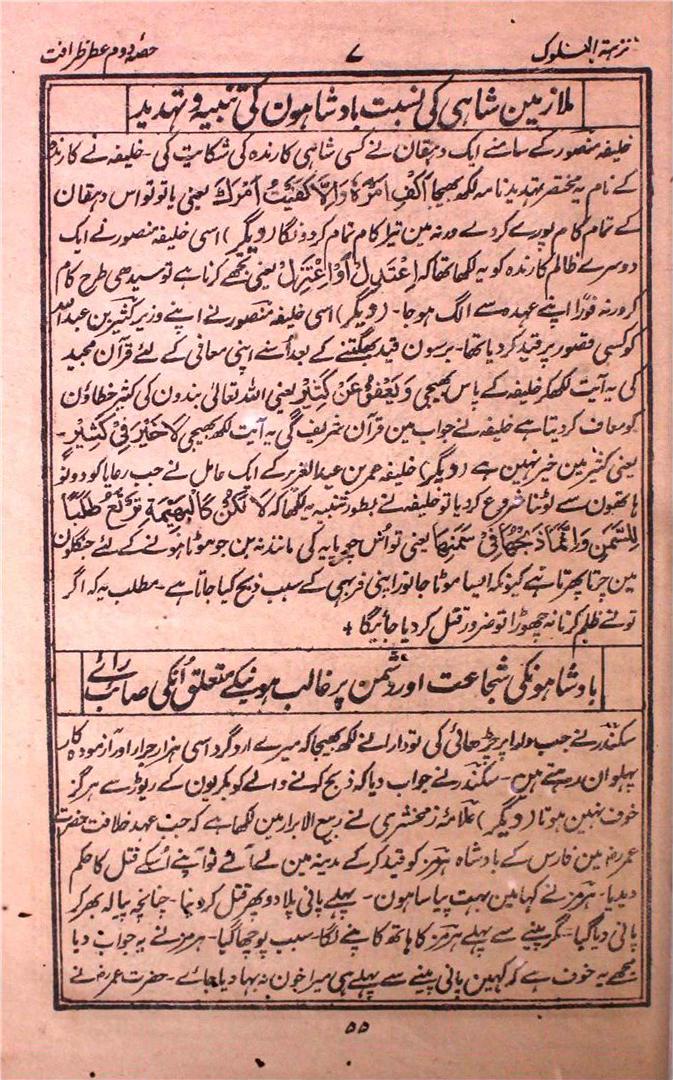 نزہتہ السلوک
۷
حصہ دوم عطر ظرافت
ملازمین شاہی کی نسبت بادشاہون کی تنبیہ و تہدید
خلیفہ منصور کے سامنے ایک دہقان نے کسی شاہی کارندہ کی شکایت کی۔ خلیفہ نے کارندہ
کے نام یہ مختصر تہدید نامہ لکھ بھیجا اَکْفِ اَمْرَہٗ وَاِلَّا کَفَیْتُ اَمْرَكَ یعنی یا تو تو اس دہقان
کے تمام کام پورے کر دے ورنہ مین تیرا کام تمام کر دونگا (دیگر) اسی خلیفہ منصور نے ایک
دوسرے ظالم کارندہ کو یہ لکھا تھا کہ اِعْتَدِلْ اَوْ اِعْتَزِلْ یعنی تجھے کرنا ہے تو سیدھی طرح کام
کرورنہ فورًا اپنے عہدہ سے الگ ہو جا۔ (دیگر) اسی خلیفہ منصور نے اپنے وزیر کثیر بن عبداللہ
کو کسی قصور پر قید کر دیا تھا۔ برسون قید بھگتنے کے بعد اُسنے اپنی معافی کے لئے قرآن مجید
کی یہ آیت لکھکر خلیفہ کے پاس بھیجی وَیَعْفُوْ عَنْ کَثِیْرٍ یعنی اللہ تعالیٰ بندون کی کثیر خطاؤن
کو معاف کر دیتا ہے خلیفہ نے جواب مین قرآن شریف کی یہ آیت لکھ بھیجی لَا خَیْرَ فِیْ کَثِیْرٍ۔
یعنی کثیر مین خیر نہین ہے (دیگر) خلیفہ عمر بن عبدالعزیز کے ایک عامل نے جب رعایا کو دونو
ہاتھون سے لوٹنا شروع کر دیا تو خلیفہ نے بطور تنبیہ یہ لکھا کہ لَا تَکُنْ کَالْبَهِیْمَةِ تَرْتَعُ طَلَبًا
لِلسَّمَنِ وَاِنَّمَا ذَبْحُهَا فِیْ سَمَنِهَا یعنی تو اُس چوپایہ کی مانند نہ بن جو موٹا ہونے کے لئے جنگلون
مین چرتا پھرتا ہے کیونکہ ایسا موٹا جانور اپنی فربہی کے سبب ذبح کیا جاتا ہے۔ مطلب یہ کہ اگر
تونے ظلم کرنا نہ چھوڑا تو ضرور قتل کر دیا جائیگا +
بادشاہونکی شجاعت اور دشمن پر غالب ہونیکے متعلق اُنکی صائب رائے
سکندر نے جب دارا پر چڑھائی کی تو دارا نے لکھ بھیجا کہ میرے ارد گرد اسی ہزار جرار اور آزمودہ کار
پہلوان رہتے ہین۔ سکندر نے جواب دیا کہ ذبح کرنے والے کو بکریون کے ریوڑ سے ہرگز
خوف نہین ہوتا (دیگر) علامہ زمخشری نے ربیع الابرار مین لکھا ہے کہ جب عہد خلافت حضرت
عمرؓ مین فارس کے بادشاہ ہرمز کو قید کر کے مدینہ مین لے آئے تو آپنے اُسکے قتل کا حکم
دیدیا۔ ہرمز نے کہا مین بہت پیاسا ہون۔ پہلے پانی پلا دو پھر قتل کر دینا۔ چنانچہ پیالہ بھر کر
پانی دیا گیا۔ مگر پینے سے پہلے ہرمز کا ہاتھ کانپنے لگا۔ سبب پوچھا گیا۔ ہرمز نے یہ جواب دیا
مجھے یہ خوف ہے کہ کہین پانی پینے سے پہلے ہی میرا خون نہ بہا دیا جائے۔ حضرت عمرؓ نے
۵۵